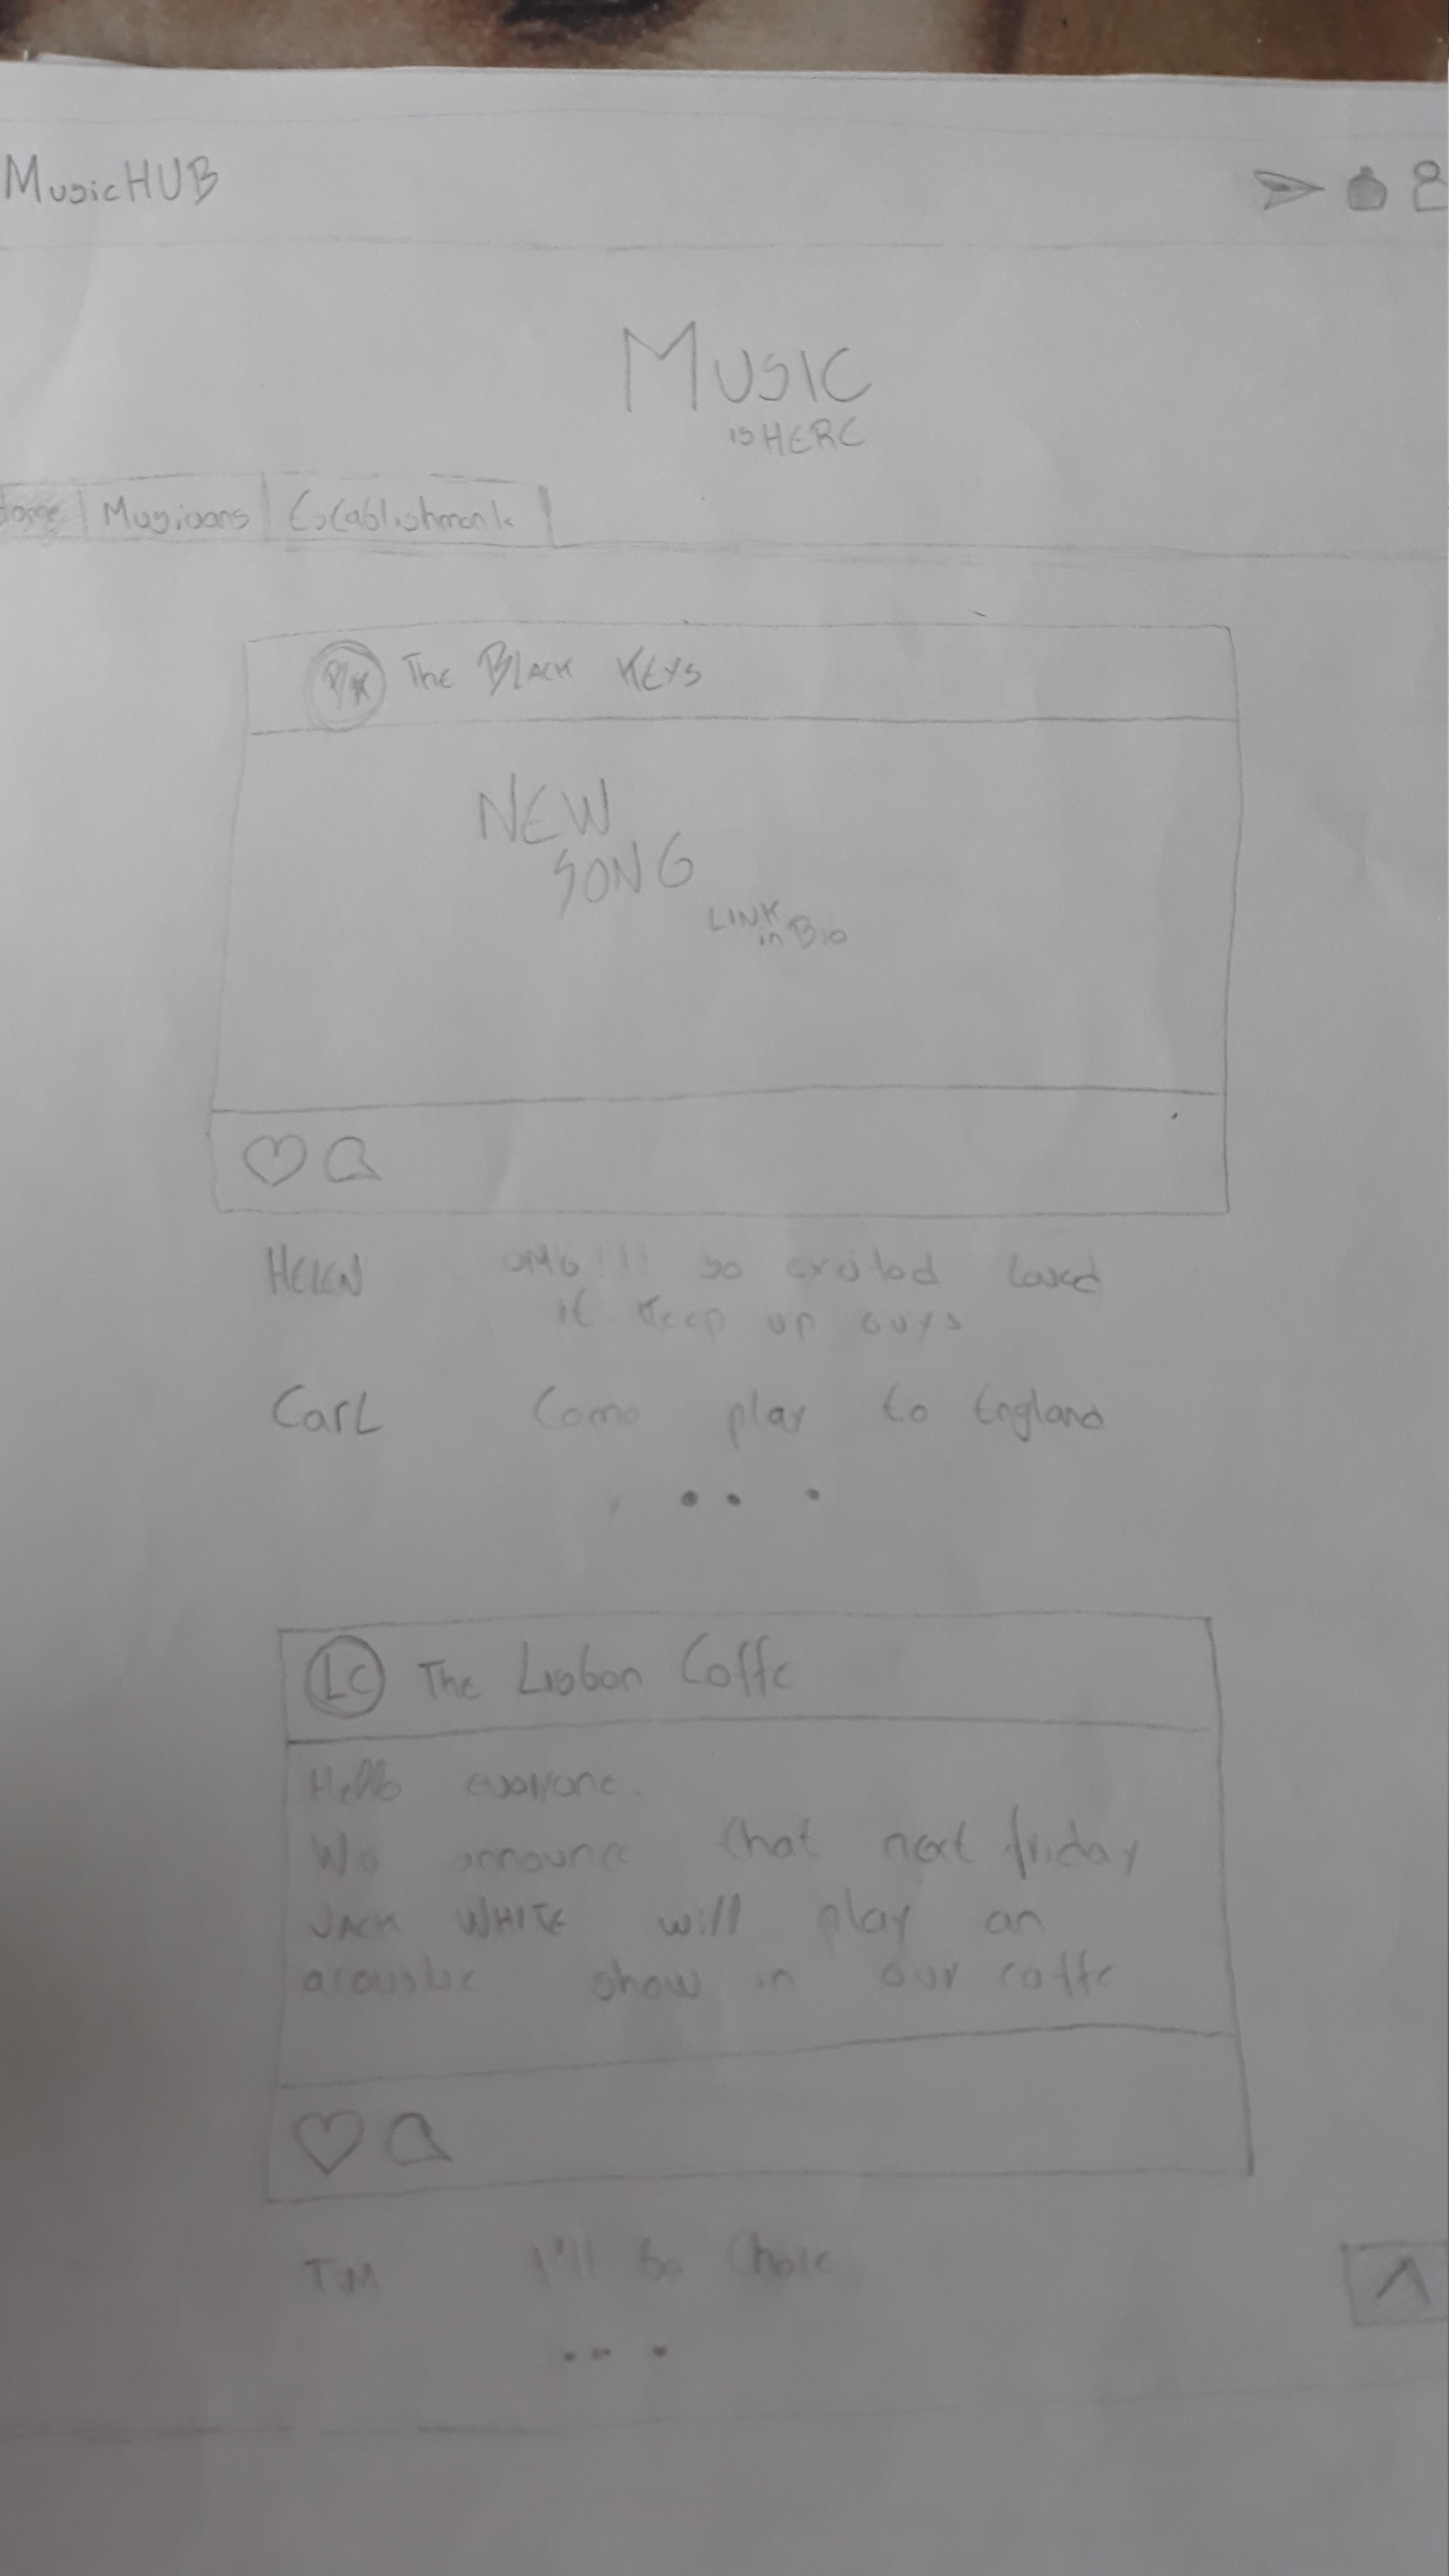 MusicHUB
MUSIC
is HERE
Home Musicians Establishments
B/K The BLACK KEYS
NEW
SONG
LINK
in Bio
HELEN OMG!!! so excited loved
it. Keep up guys
CarL Come play to England
...
LC The Lisbon Coffe
Hello everyone.
We announce that next friday
JACK WHITE will play an
acoustic show in our coffe
TIM I'll be there
...